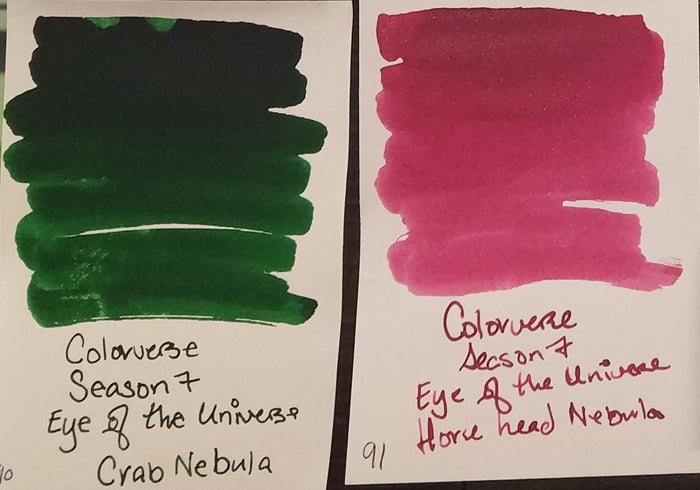 Colorverse
Season 7
Eye of the Universe
Crab Nebula
Colorverse
Season 7
Eye of the Universe
Horse head Nebula
91